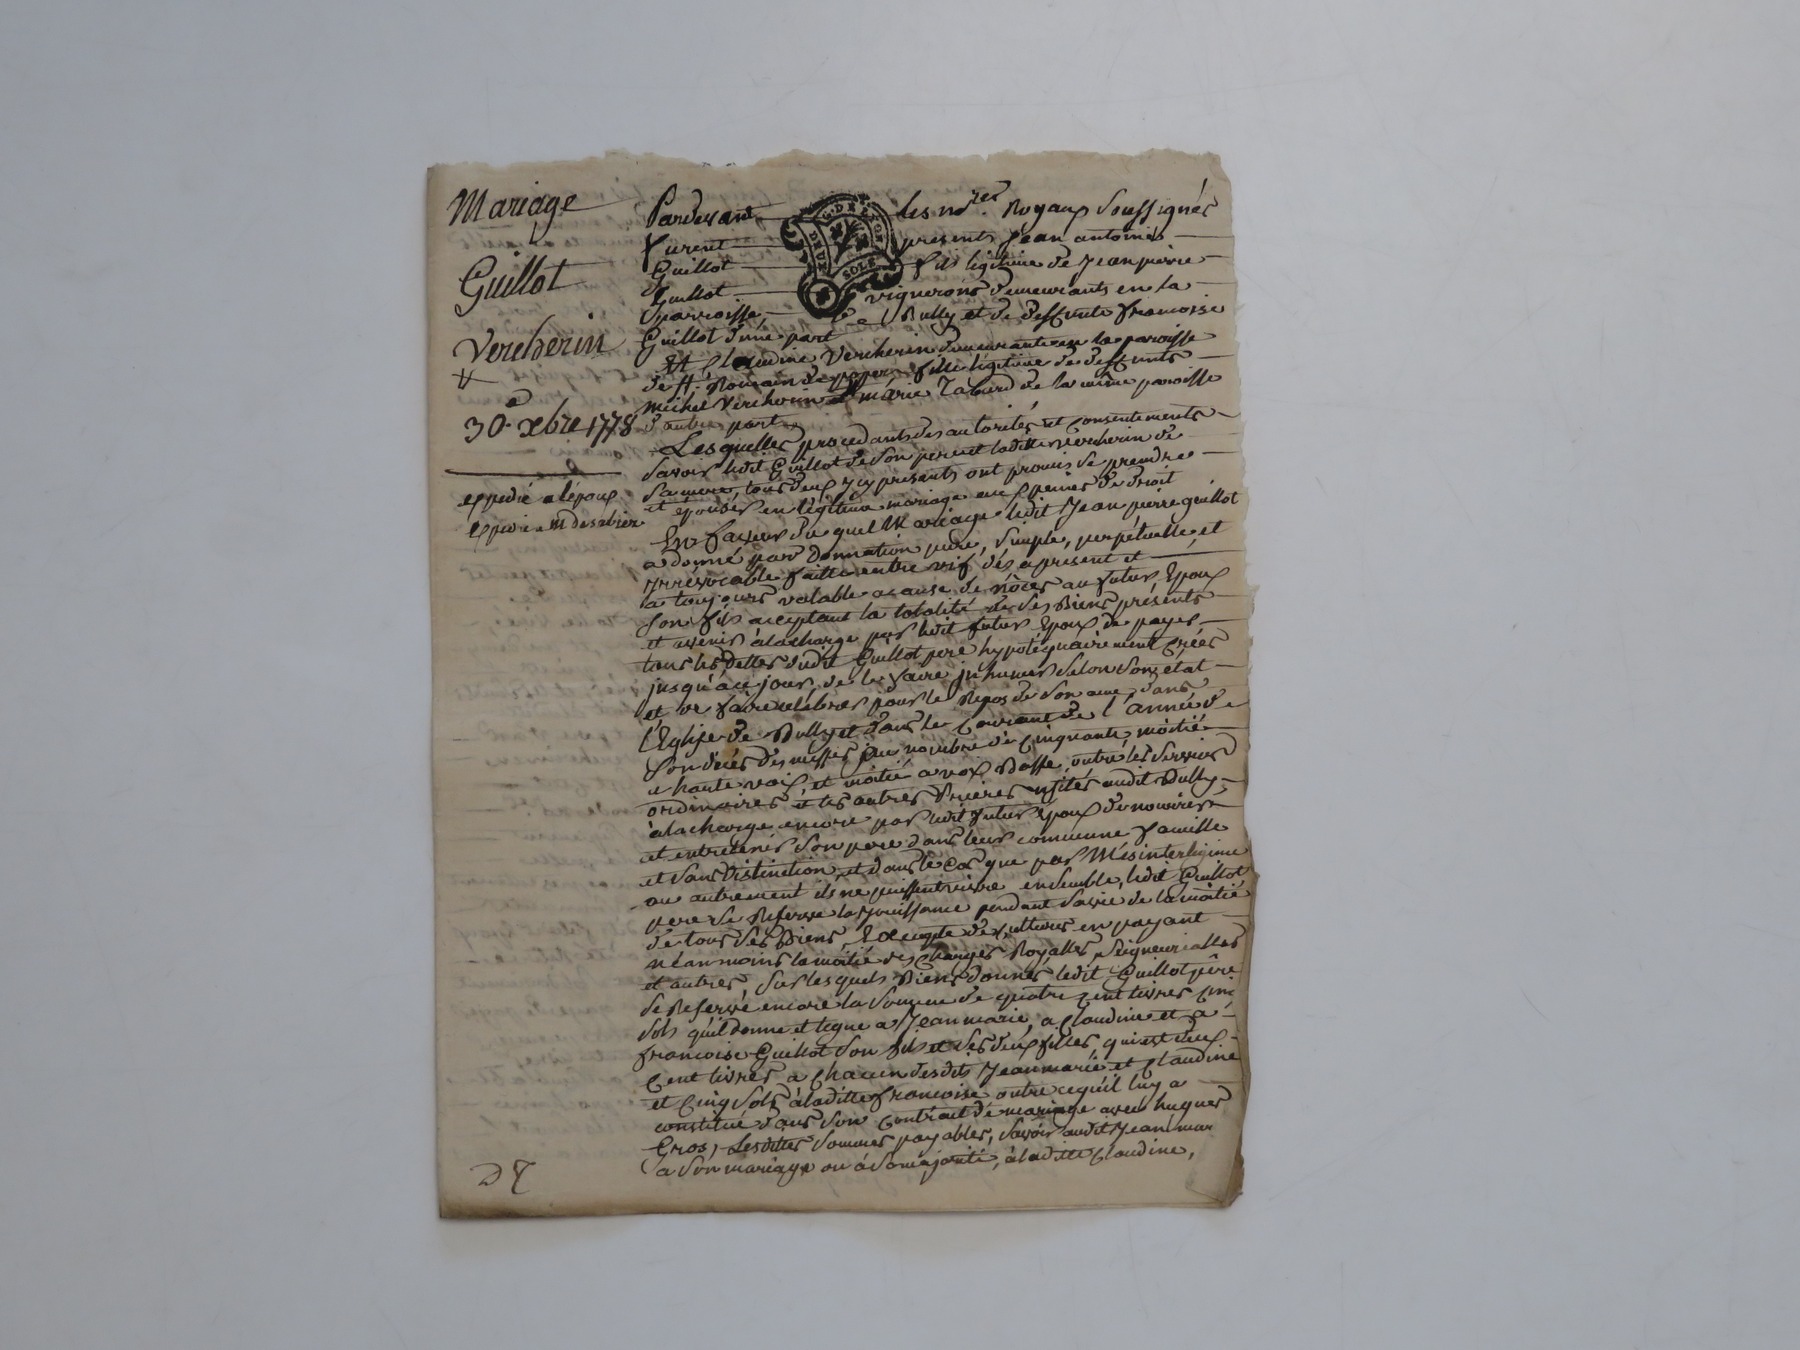 Mariage
Guillot
Vercherin
30e xbre 1778
expedié a lépoux
expedié a M desarbier
Pardevant les nores Royaux Soussignés
furent présents Jean antoine
Guillot fils légitime de Jean pierre
Guillot vignerons demeurants en la
parroisse de Bully et de deffunte francoise
Guillot d'une part
Et Claudine Vercherin demeurante en la paroisse
de St Romain de popey fille légitime de deffunts
michel Vercherin et marie Tabard de la même paroisse
d'autre part
Lesquelles procedants des autorités et Consentements
Savoir ledit Guillot de Son pere et laditte Vercherin de
Sa mere, tous deux icy présents ont promis Se prendre
et épouser en légitime mariage aux peines de droit
En faveur duquel Mariage ledit Jean pierre guillot
a donné par donnation pure, Simple, perpétuelle, et
irrévocable faitte entre vif dès apresent et
a toujours valable acause de nôces au futur Epoux
Son fils acceptant la totalité de Ses Biens présents
et avenir àlacharge par ledit futur Epoux de payer
tous les dettes dudit Guillot pere hypotéquairement Créés
jusqu'à ce jour, de le faire inhumer Selon Son état
et de faire celebrer pour le Repos de Son ame dans
l'Eglise de Bully et dans le Courant de l'année de
Son décès des messes au nombre de Cinquante, moitié
a haute voix, et moitié a voix Basse, outre les Services
ordinaires et les autres Prieres usités audit Bully,
àlacharge encore par ledit futur Epoux de nourir
et entretenir Son pere dans leur commune famille
et Sans Distinction, et dans le Cas que par Mésinteligence
ou autrement ils ne puissent vivre ensemble, ledit Guillot
pere Se Reserve la Jouissance pendant Savie de la moitié
de tous Ses Biens, Exempte de Cultures en payant
néanmoins la moitié des Charges Royalles, Seigneurialles
et autres, Sur lesquels Biens donnés ledit Guillot père
Se Reserve encore la Somme de quatre Cent livres Cinq
Sols qu'il donne et legue a Jean marie, a Claudine et a
francoise Guillot Son fils et Ses deux filles, qui est deux
Cent livres a Chacun desdits Jean marie et Claudine
et Cinq Sols àladitte francoise outre cequ'il luy a
constitué dans Son Contrait de mariage avec hugues
Gros, Lesdittes Sommes payables, Savoir audit Jean mar
a Son mariage ou à Samajorité, àladitte Claudine,